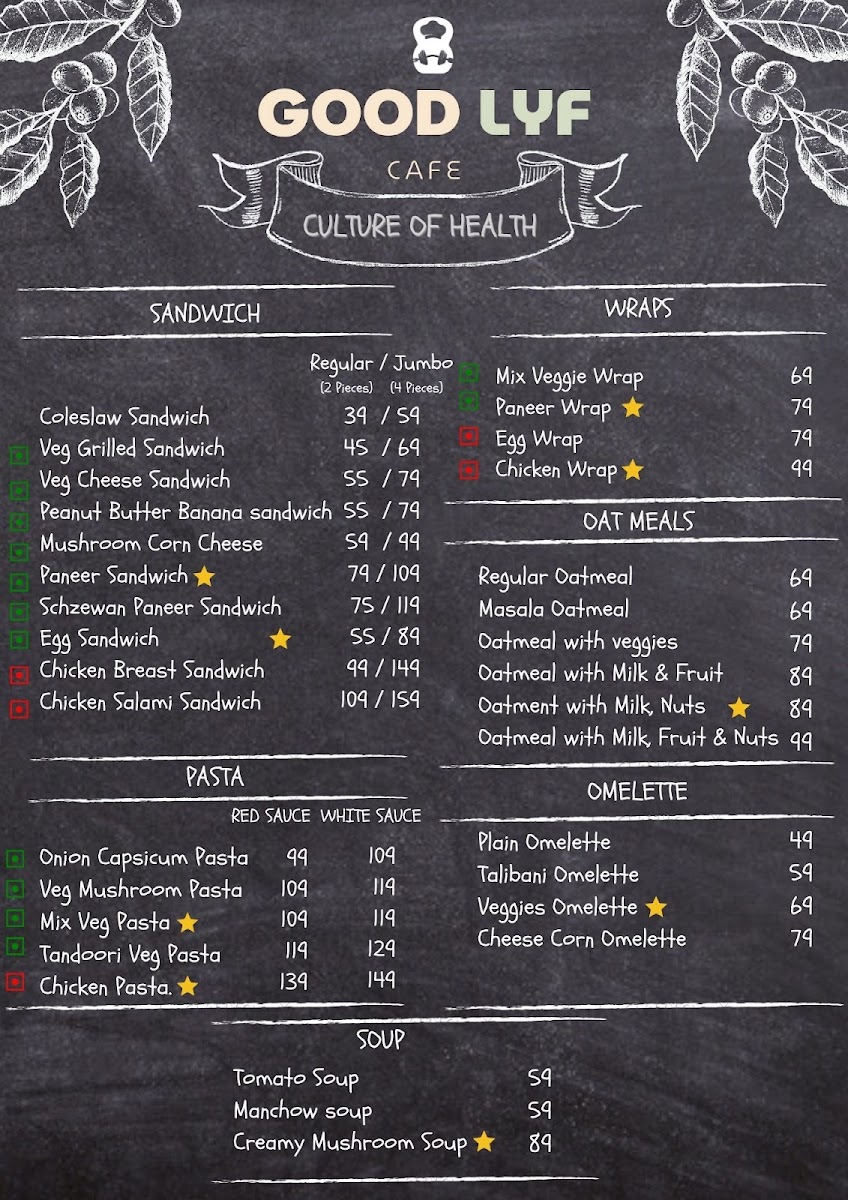 GOOD LYF
CAFE
CULTURE OF HEALTH
SANDWICH
Regular / Jumbo
(2 Pieces) (4 Pieces)
Coleslaw Sandwich 39 / 59
Veg Grilled Sandwich 45 / 69
Veg Cheese Sandwich 55 / 79
Peanut Butter Banana sandwich 55 / 79
Mushroom Corn Cheese 59 / 99
Paneer Sandwich 79 / 109
Schzewan Paneer Sandwich 75 / 119
Egg Sandwich 55 / 89
Chicken Breast Sandwich 99 / 149
Chicken Salami Sandwich 109 / 159
PASTA
RED SAUCE WHITE SAUCE
Onion Capsicum Pasta 99 109
Veg Mushroom Pasta 109 119
Mix Veg Pasta 109 119
Tandoori Veg Pasta 119 129
Chicken Pasta. 139 149
WRAPS
Mix Veggie Wrap 69
Paneer Wrap 79
Egg Wrap 79
Chicken Wrap 99
OAT MEALS
Regular Oatmeal 69
Masala Oatmeal 69
Oatmeal with veggies 79
Oatmeal with Milk & Fruit 89
Oatment with Milk, Nuts 89
Oatmeal with Milk, Fruit & Nuts 99
OMELETTE
Plain Omelette 49
Talibani Omelette 59
Veggies Omelette 69
Cheese Corn Omelette 79
SOUP
Tomato Soup 59
Manchow soup 59
Creamy Mushroom Soup 89